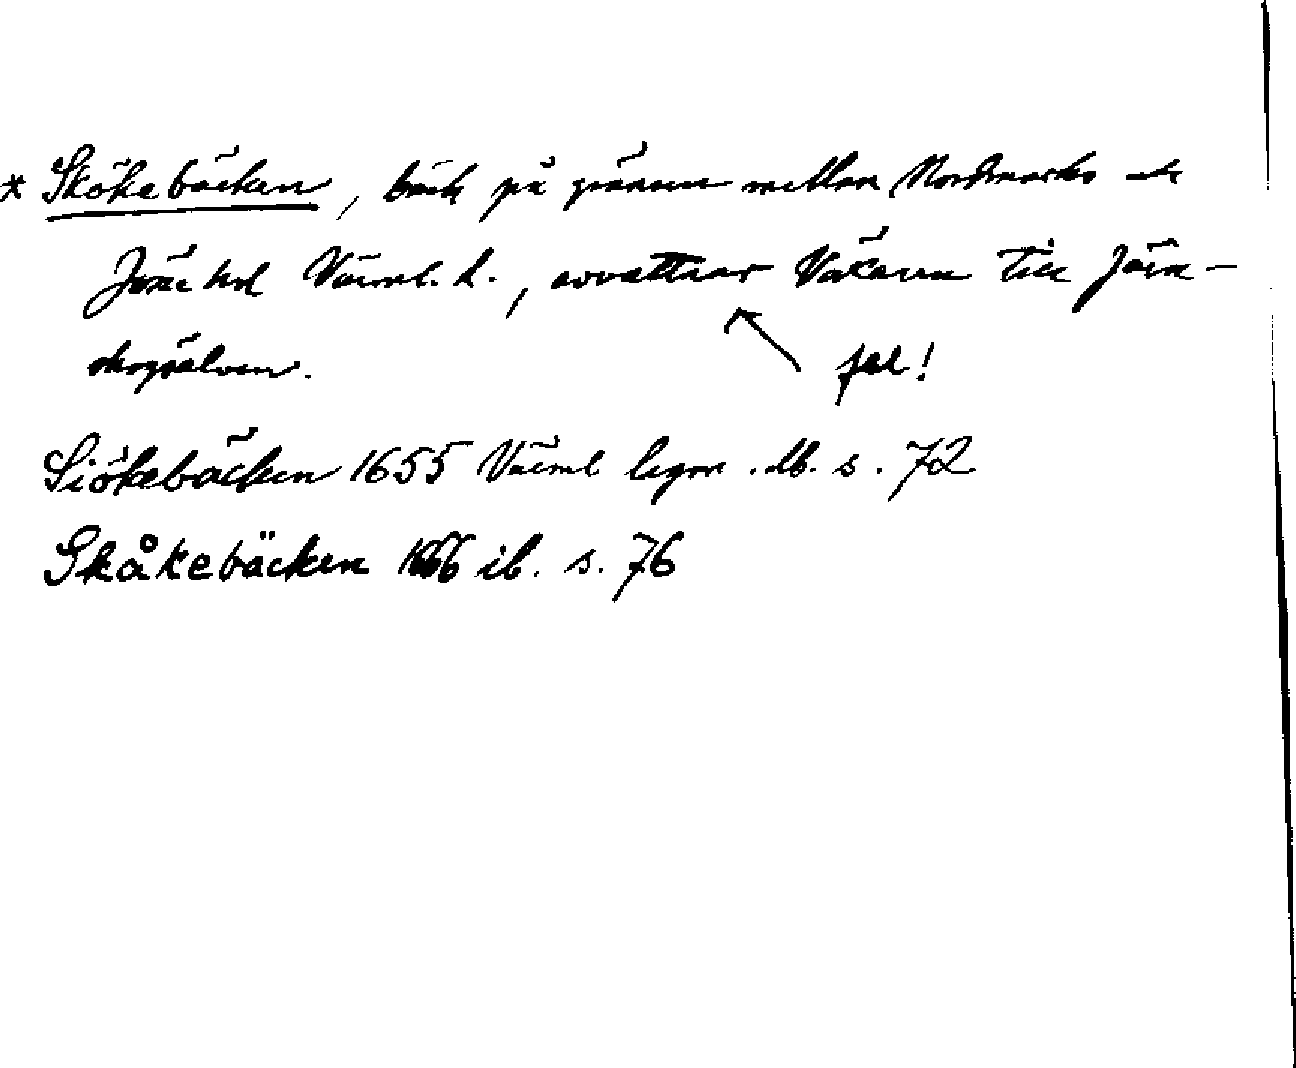 * Skökebäcken, bäck på gränsen mellan Nordmarks och
Jösse hd Värml. l., avvattnar Väkaren till Järn-
skogsälven.
fel!
Siökebäcken 1655 Värml legm. db. s. 72
Skåkebäcken 1666 ib. s. 76